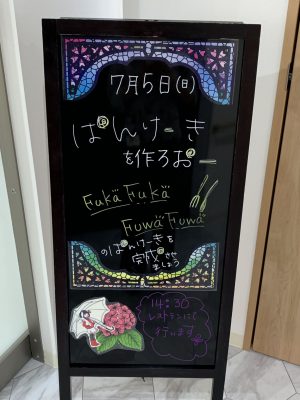 7月5日(日)
ぱんけーき
を作ろおー
Fukä Fukä
Fuwä Fuwä
のぱんけーきを
完成させ
ましょう
14:30
レストランにて
行います